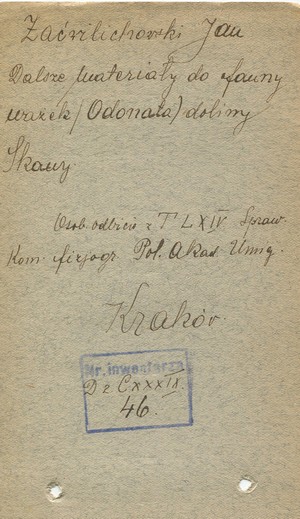 Zaćwilichowski Jan
Dalsze materiały do fauny
ważek (Odonata) doliny
Skawy.
Osob. odbicie z T LXIV Spraw.
Kom. fizjogr. Pol. Akad. Umieję.
Kraków.
Nr. inwentarza
Dz CXXXIX.
46.